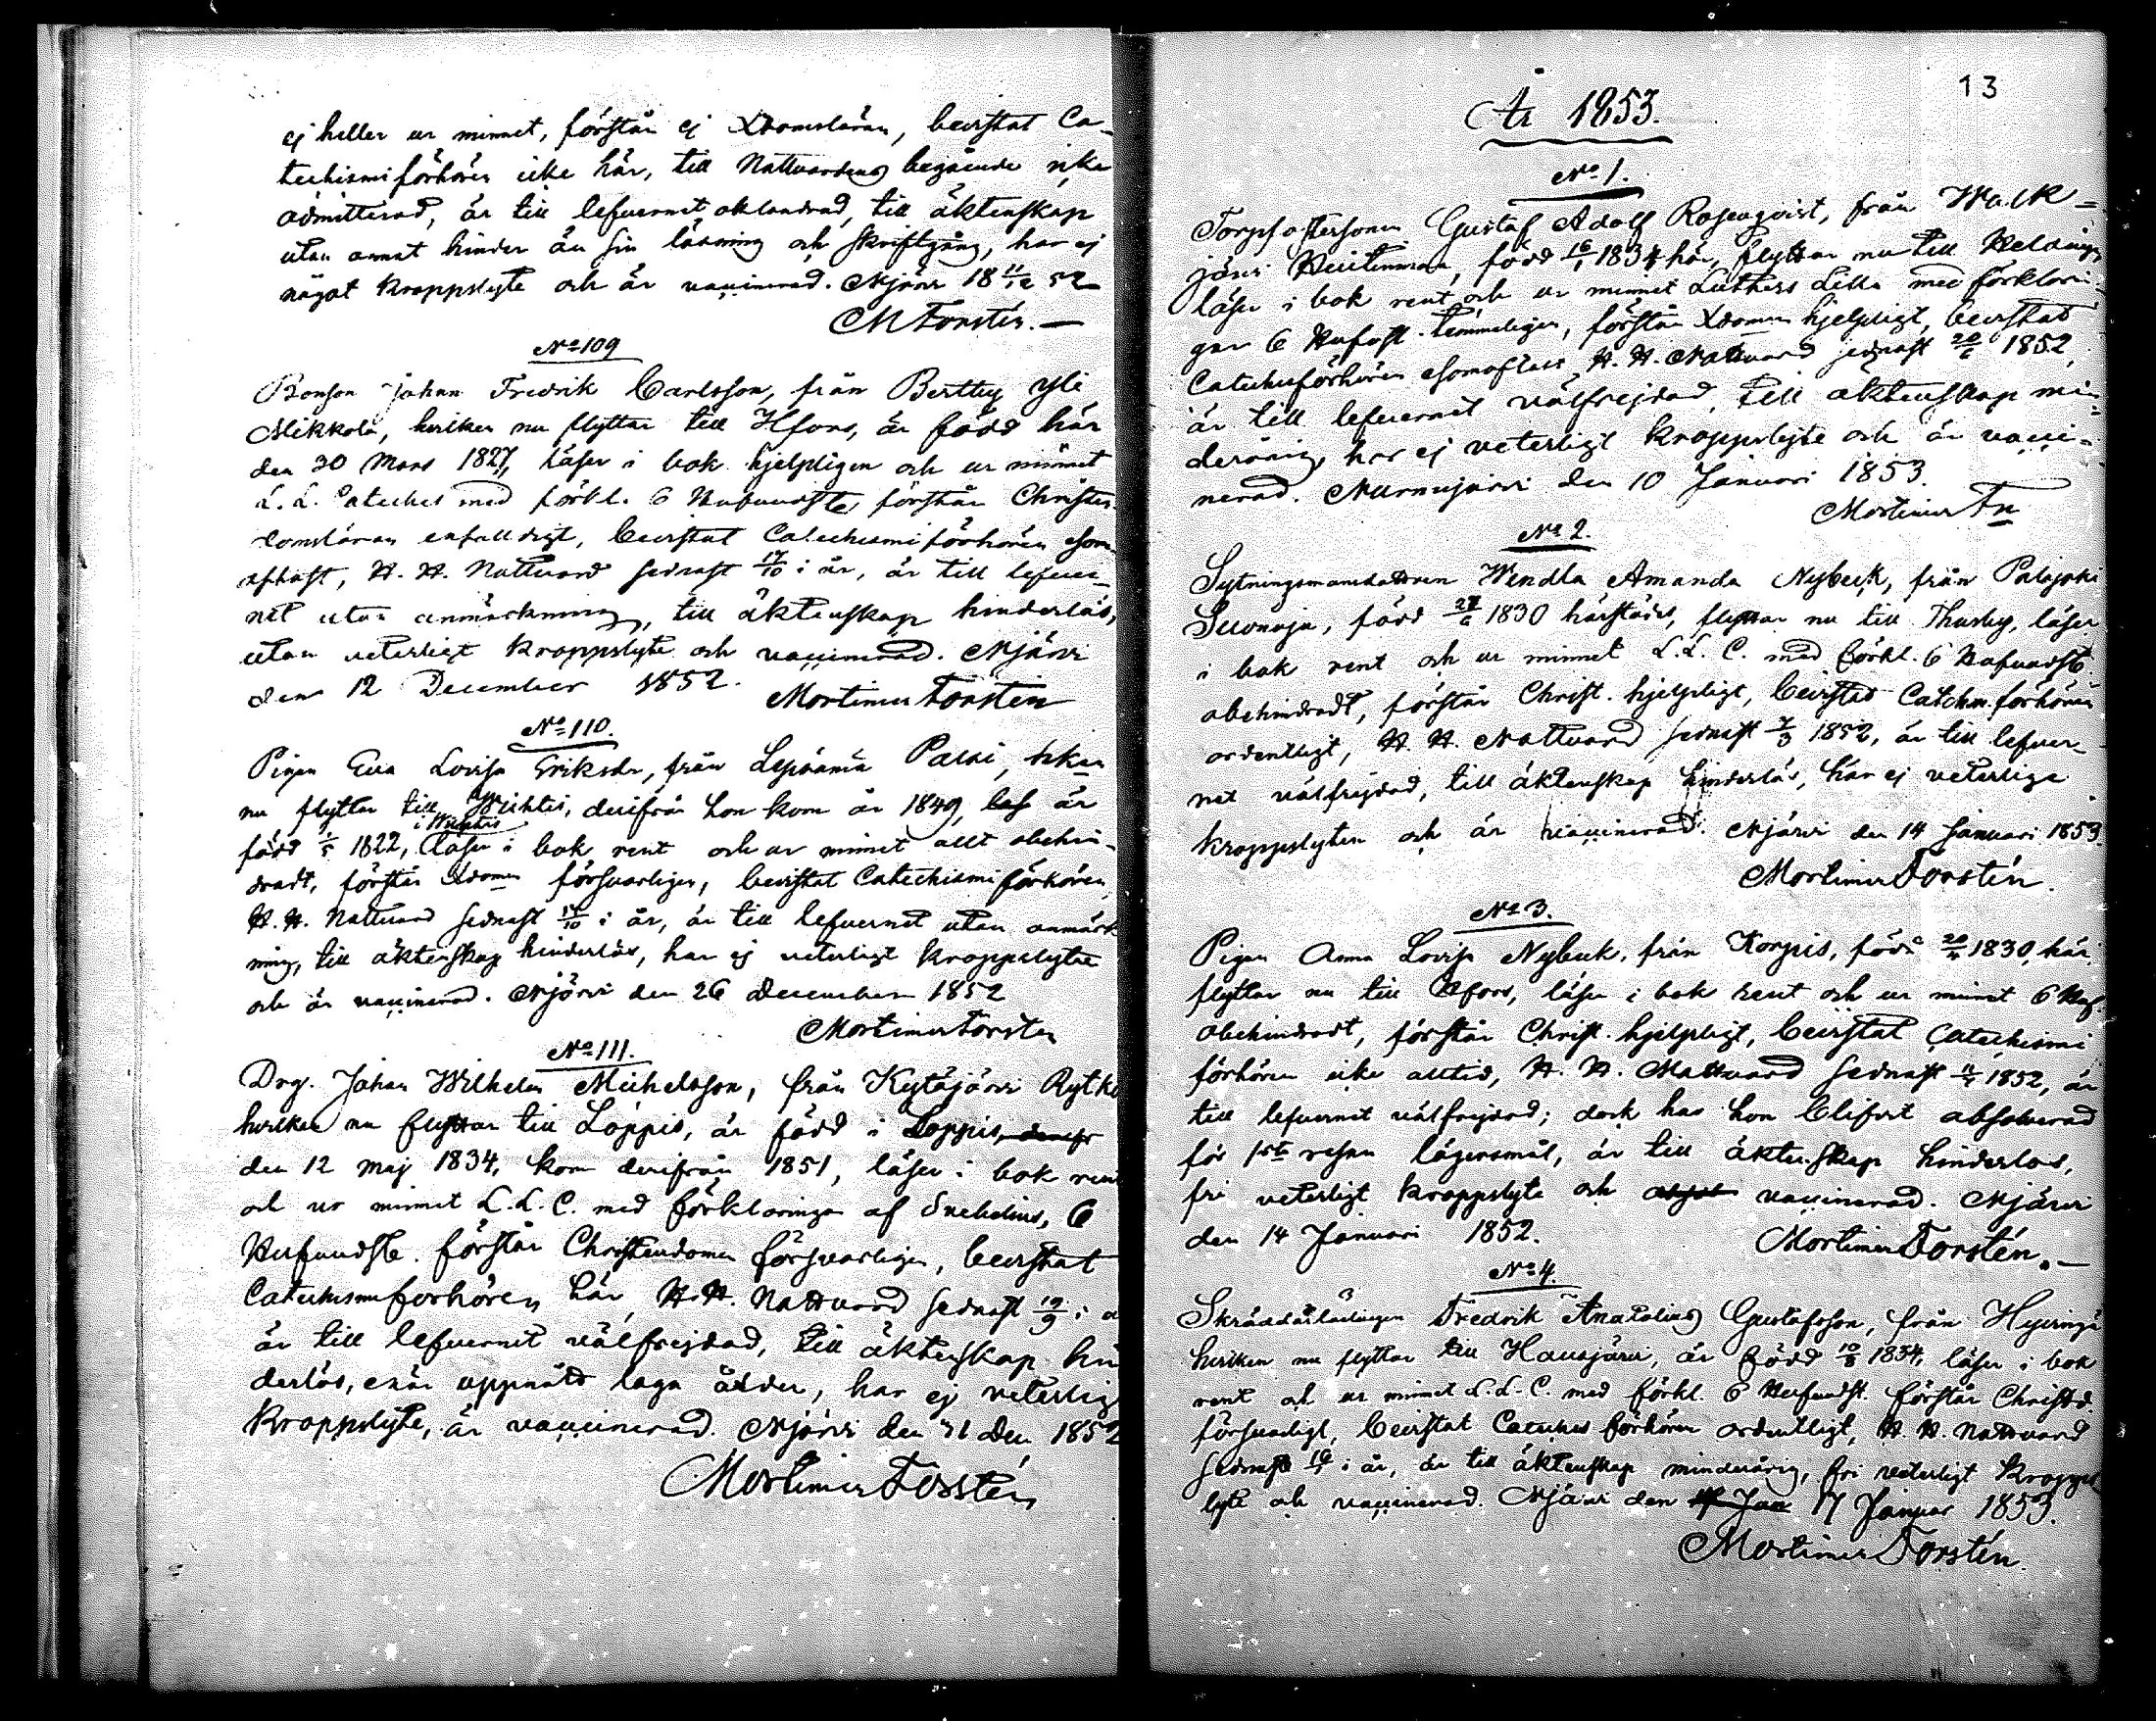 ej heller ur minnet, förstår ej Xdomsläran, bevistat Ca-
techismiförhören icke här, till Nattvardens begående icke
admitterad, är till lefvernet oklandrad, till äktenskap
utan annat hinder än sin läsning och skriftgång, har ej
något kroppslyte och är vaccinerad. Njärvi 18 11/12 52
M Forstén.—
No 109
Bonson Johan Fredrik Carlsson, från Bertby Yli
Mikkola, hvilken nu flyttar till Hfors, är född här
den 30 Mars 1827, läser i bok hjelpligen och ur minnet
L. L. Cateches med förkl. 6 Hufvudst, förstår Christen-
domsläran enfalldigt, bevistat Catechismiförhören som
oftast, H. H. Nattvard sednast 17/10 i år, är till lefver-
net utan anmärkning, till äktenskap hinderlös,
utan veterligt kroppslyte och vaccinerad. Njärvi
den 12 December 1852.
Mortimer Forstén
No 110.
Pigan Eva Lovisa Eriksdr, från Lepsämä Palai, hvken
nu flyttar till Wichtis, derifrån hon kom år 1849, är
född 1/5 1822, i Wichtis läser i bok rent och ur minnet allt obehin-
dradt, förstår Xdomen försvarligen, bevistat Catechismiförhören,
H. H. Nattvard sednast 17/10 i år, är till lefvernet utan anmärk
ning, till äktenskap hinderlös, har ej veterligt kroppslyte
och är vaccinerad. Njärvi den 26 December 1852
Mortimer Forstén
No 111.
Drg. Johan Wilhelm Michelsson, från Kytäjärvi Rytkö
hvilken nu flyttar till Loppis, är född i Loppis,
den 12 Maj 1834, kom derifrån 1851, läser i bok rent
och ur minnet L. L. C. med förklaringar af Svebelius, 6
Hufvudst. förstår Christendomen försvarligen, bevistat
Catechismiförhören här, H. H. Nattvard sednast 19/9 i å
är till lefvernet välfrejdad, till äktenskap hin
derlös, enär uppnått laga ålder, har ej veterlig
kroppslyte, är vaccinerad. Njärvi den 31 Dec 1852
Mortimer Forstén
13
År 1853.
No 1.
Torpsostersonen Gustaf Adolf Rosenqvist, från Walk=
järvi, född 16/1 1834 här, flyttar nu till Helsinge,
läser i bok rent och ur minnet Luthers Lilla med förklarin-
gar 6 Hufvst. temmeligen, förstår Xdomen hjelpligt, bevistat
Catechesförhören som oftast, H. H. Nattvard sednast 20/6 1852,
är till lefvernet välfrejdad, till äktenskap min-
derårig, har ej veterligt kroppslyte och är vacci-
nerad. Nurmijärvi den 10 Januari 1853.
Mortimer Fn
No 2.
Sytningsmansdottren Wendla Amanda Nybeck, från Palojoki
Suonoja, född 27/6 1830 härstädes, flyttar nu till Thusby, läser
i bok rent och ur minnet L. L. C. med förkl. 6 Hufvudst.
obehindradt, förstår Christ. hjelpligt, bevistat Catchm.förhören
ordentligt, H. H. Nattvard sednast 7/3 1852, är till lefver-
net välfrejdad, till äktenskap hinderlös, har ej veterliga
kroppslyten och är vaccinerad. Njärvi den 14 Januari 1853.
Mortimer Forstén.
No 3.
Pigan Anna Lovisa Nybeck, från Korpis, född 20/4 1830, här,
flyttar nu till Hfors, läser i bok rent och ur minnet 6 Huf.
obehindradt, förstår Christ. hjelpligt, bevistat Catechismi
förhören icke alltid, H. H. Nattvard sednast 11/4 1852, är
till lefvernet välfrejdad; dock har hon blifvit absolverad
för 1sta resan lägersmål, är till äktenskap hinderlös,
fri veterligt kroppslyte och vaccinerad. Njärvi
den 14 Januari 1852.
Mortimer Forstén.—
No 4.
Skräddarlärlingen Fredrik Anatolius Gustafsson, från Hyvinge
hvilken nu flyttar till Hausjärvi, är född 10/8 1834, läser i bok
rent och ur minnet L. L. C. med förkl. 6 Hufvudst. förstår Christd.
försvarligt, bevistat Cateches förhören ordentligt, H. H. Nattvard
sednast i år, är till äktenskap minderårig, fri veterligt kropps
lyte och vaccinerad. Njärvi den 17 Januar 1853.
Mortimer Forstén.